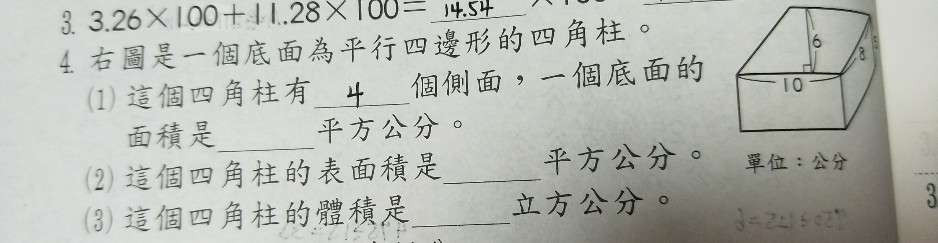 3. 3.26×100+11.28×100= 14.54
4. 右圖是一個底面為平行四邊形的四角柱。
(1) 這個四角柱有 4 個側面，一個底面的
面積是______平方公分。
(2) 這個四角柱的表面積是______平方公分。
(3) 這個四角柱的體積是______立方公分。
6
8
10
單位：公分
3